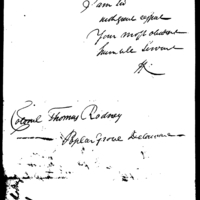 I am Sir
with great respect
Your most obedient
humble Servant
Colonel Thomas Rodney
Poplar Grove Delaware